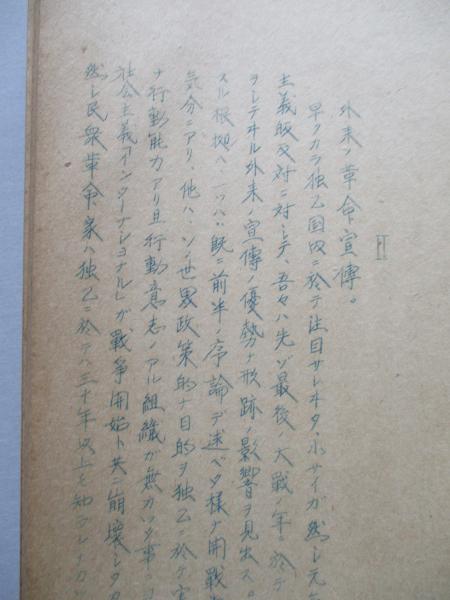 II
外来ノ革命宣傳。
早クカラ独乙国内ニ於テ注目サレキタ、小サイガ然シ元
主義叛反対ニ対シテ、吾々ハ先ヅ最後ノ大戦ノ年ニ於テ
ヲシテヰル外来ノ宣傳ノ優勢ナ形跡ノ影響ヲ見出ス。
スル根拠ハ、一ツハ既ニ前半ノ序論デ述ベタ様ナ開戦
気分ニアリ、他ハ、ソノ世界政策的ナ目的ヲ独乙ニ於テ
ナ行動能力アリ且行動意志ノアル組織ガ無カツタ事
社会主義「インターナショナル」ガ戦争開始ト共ニ崩壊シタ
然シ民衆革命家ハ独乙ニ於テハ三十年以上モ知ラレナカ